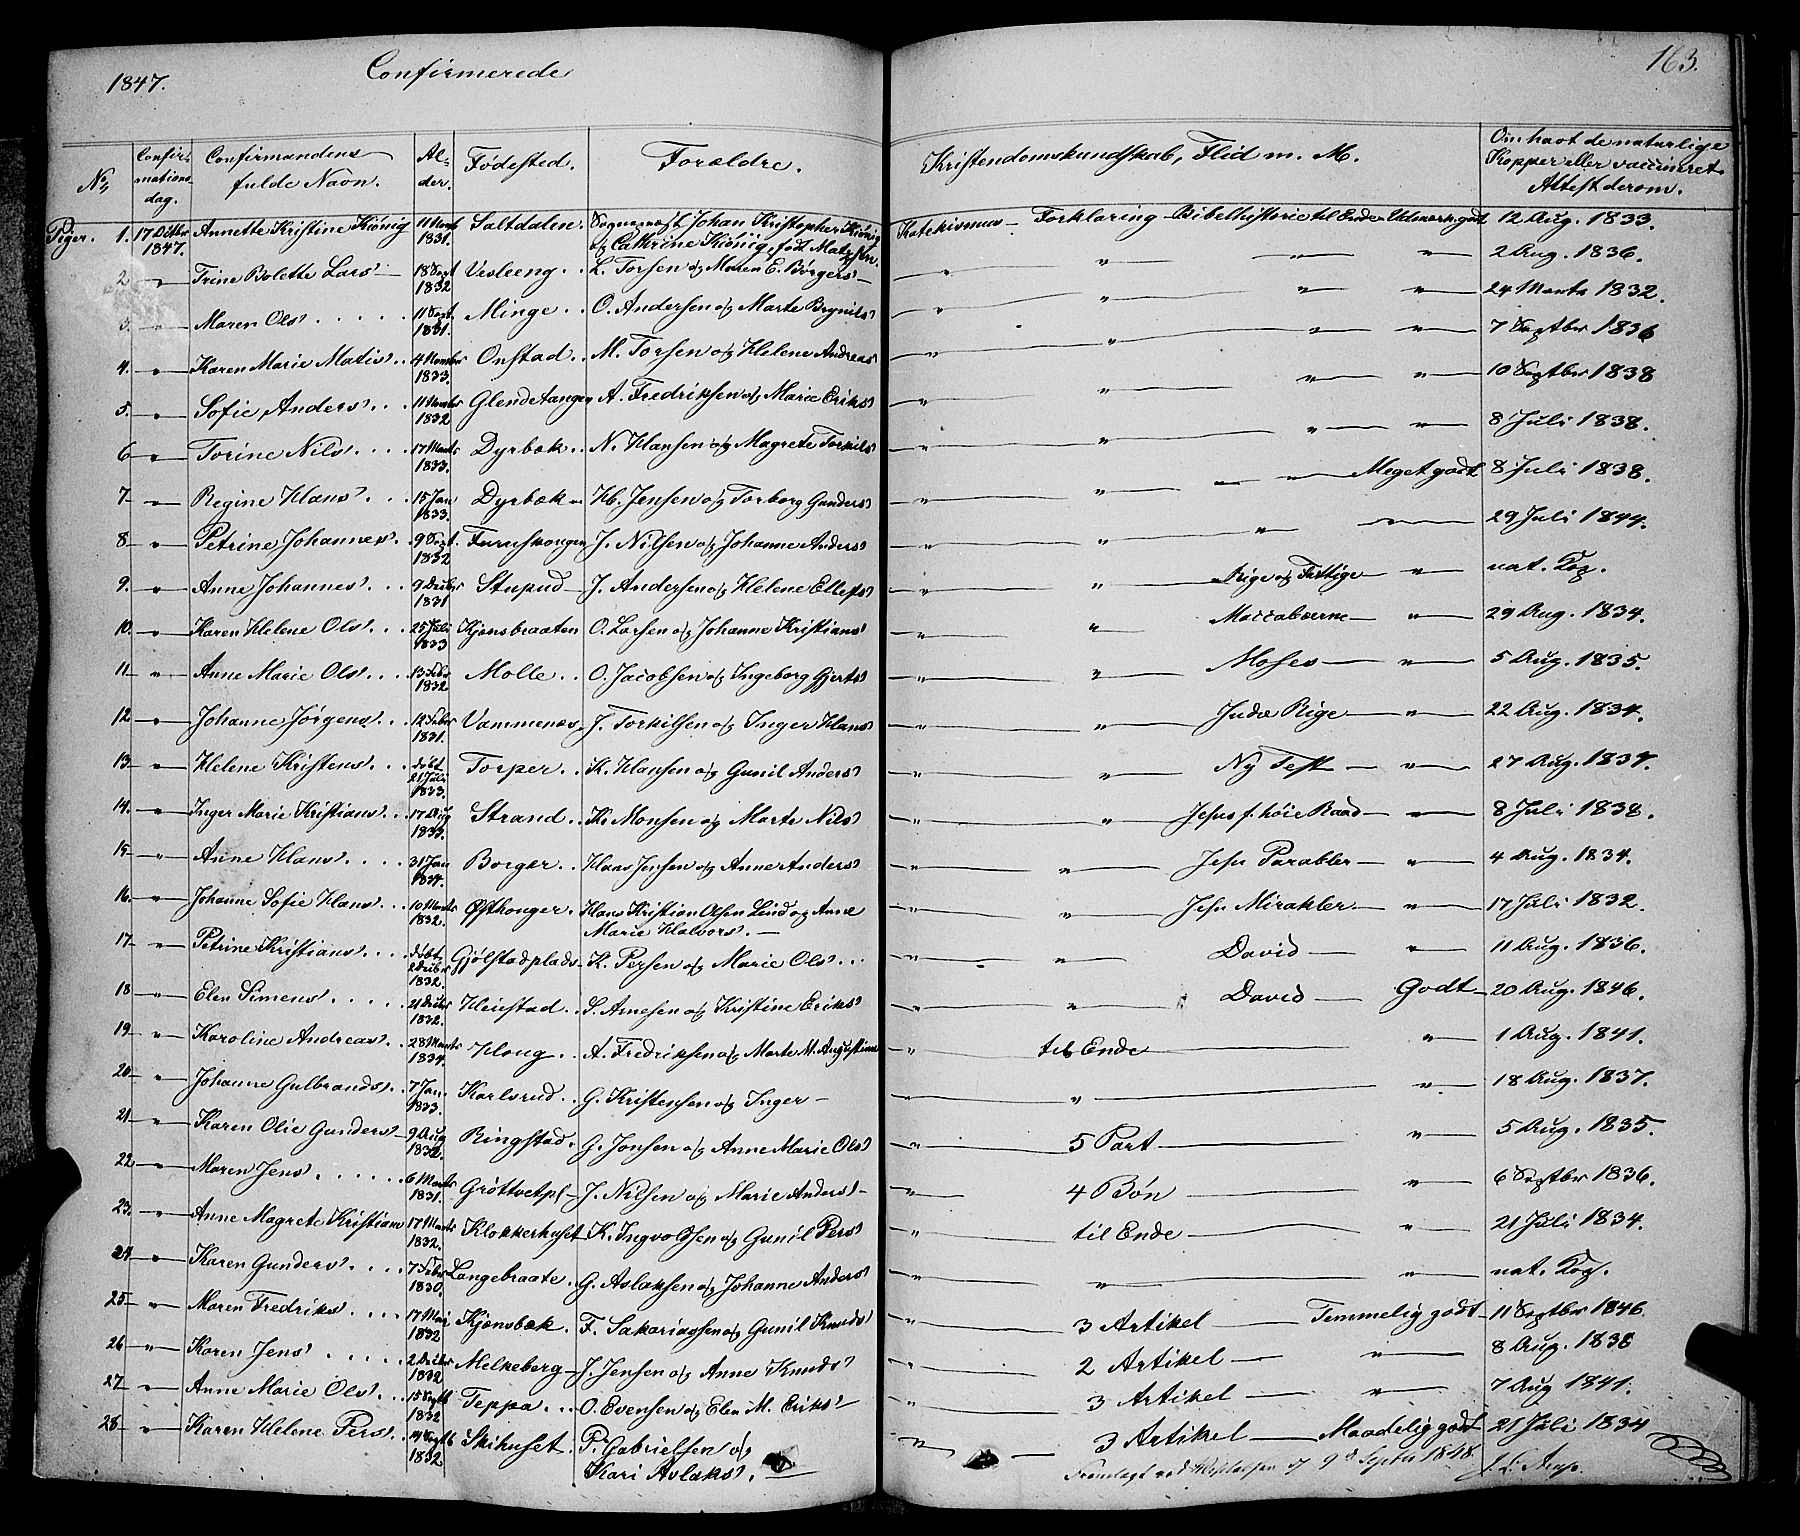 1847. Confirmerede 163.
No Confirmations dag. Confirmandens fulde Navn. Alder. Fødested. Forældre. Kristendomskundskab, Flid m. M. Om havt de naturlige Kopper eller vaccineret. Attest derom.
Piger. 1. 17 Octbr 1847. Annette Kristine Kiönig 11 Marts 1831. Saltdalen. Sognepræst Johan Kristopher Kiönig og Cathrine Kiönig, født Matzsen. Katekismus — Forklaring — Bibelhistorie til Ende — Udmærk. godt 12 Aug. 1833.
2 — " — Trine Bolette Lars' — 18 Sept 1832 Vesleeng .. L. Torsen og Maren E. Børgers — " — " — " — " — 2 Aug. 1836.
3. — " — Maren Ols' . . . . . 11 Sept. 1831. Minge .. O. Andersen og Marte Brynils' — " — " — " — " — 24 Marts 1832.
4. — " — Karen Marie Matis' .. 4 Novmbr 1833. Onstad .. M. Torsen og Helene Andreas' — " — " — " — " — 7 Septbr 1836
5. — " — Sofie Anders' . . . 11 Novmbr 1832 Glendetangen A. Fredriksen og Marie Eriks' — " — " — " — " — 10 Septbr 1838
6 — " — Torine Nils' . . . . 17 Marts 1833. Dyrbæk .. N. Hansen og Magrete Torkils' — " — " — " — " — 8 Juli 1838.
7 — " — Regine Hans' . . . 15 Jan 1833. Dyrbæk .. Hb. Jensen og Torborg Gunders' — " — " — " — Meget godt 8 Juli 1838.
8 — " — Petrine Johannes' . 9 Sept. 1832 Furuskongen J. Nilsen og Johanne Anders' — " — " — " — " — 29 Juli 1844.
9. — " — Anne Johannes' . . . 9 Decbr 1831 Stupud — J. Andersen og Helene Ellefs' — " — " — Rige og Fattige — " — nat. Kop.
10. — " — Karen Helene Ols' . . 25 Juli 1833 Kjønsbraaten O. Larsen og Johanne Kristians' — " — " — Maccabæerne — " — 29 Aug. 1834.
11 — " — Anne Marie Ols' . . . 13 Febr 1832 Molle .. O. Jacobsen og Ingeborg Gjerts' — " — " — Moses — " — 5 Aug. 1835.
12 — " — Johanne Jørgens' . . . 12 Febr 1831. Vammenæs J. Torkilsen og Inger Hans' — " — " — Judæ Rige — " — 22 Aug. 1834.
13 — " — Helene Kristens' . . . døbt 21 Juli 1833. Torper .. K. Hansen og Gunil Anders' — " — " — Ny Test — " — 27 Aug. 1834.
14. — " — Inger Marie Kristians' .. 17 Aug 1833. Strand .. K. Monsen og Marte Nils' — " — " — Jesus f. høie Raad — " — 8 Juli 1838.
15 — " — Anne Hans' . . . . 31 Jan 1834. Borger .. Hans Jensen og Anne Anders' — " — " — Jesu Parabler — " — 4 Aug. 1834.
16. — " — Johanne Sofie Hans' . . 10 Marts 1832. Østhonger. Hans Kristian Olsen Lund og Anne Marie Halvors'. — " — " — Jesu Mirakler — " — 17 Juli 1832.
17 — " — Petrine Kristians' . . . døbt 2 Decbr 1832. Gjølstadplads K. Persen og Marie Ols' .. — " — " — David — " — 11 Aug. 1836.
18 — " — Elen Simens' . . . . . 21 Decbr 1832. Heiestad . S. Arnesen og Kristine Eriks' — " — " — David — Godt — 20 Aug. 1846.
19 — " — Karoline Andreas' . . 28 Marts 1834. Hong .. A. Fredriksen og Marte M. Augustins — " — til Ende — " — 1 Aug. 1841.
20 — " — Johanne Gulbrands' . . 7 Jan. 1833. Karlsrud .. G. Kristensen og Inger — " — " — " — 18 Aug. 1837.
21 — " — Karen Olie Gunders — 9 Aug 1832. Ringstad. G. Jonsen og Anne Marie Ols' — " — 5 Part — " — 5 Aug. 1835.
22 — " — Maren Jens' . . . . . . 6 Marts 1831. Grøttvetpl — J. Nilsen og Marie Anders — " — 4 Bøn — " — 6 Septbr 1836.
23. — " — Anne Magrete Kristians 17 Marts 1832. Klokkerhuset K. Ingvolsen og Gunil Pers' — " — til Ende — " — 21 Juli 1834.
24 — " — Karen Gunders' . . . . 7 Febr 1830. Langebraate . G. Aslaksen og Johanne Anders' — " — " — " — nat. Kop.
25 — " — Maren Fredriks' . . . 17 Mai 1832 Kjønsbæk . F. Sakariassen og Gunil Knuds' — " — 3 Artikel — Temmelig godt — 11 Septbr 1846
26 — " — Karen Jens' . . . . . . 2 Decbr 1832 Melkeberg — J. Jensen og Anne Knuds' — " — 2 Artikel — " — 8 Aug. 1838
27 — " — Anne Marie Ols' . . 15 Septb 1832 Teppa ... O. Evensen og Elen M. Eriks' — " — 3 Artikel — " — 7 Aug 1841.
28 — " — Karen Helene Pers' . 14 Septb 1832 Skihuset . P. Gabrielsen og Kari Aslaks'. — " — 3 Artikel — Maadelig godt 21 Juli 1834
Fremlagt ved Visitatsen d 9d Septbr 1848.